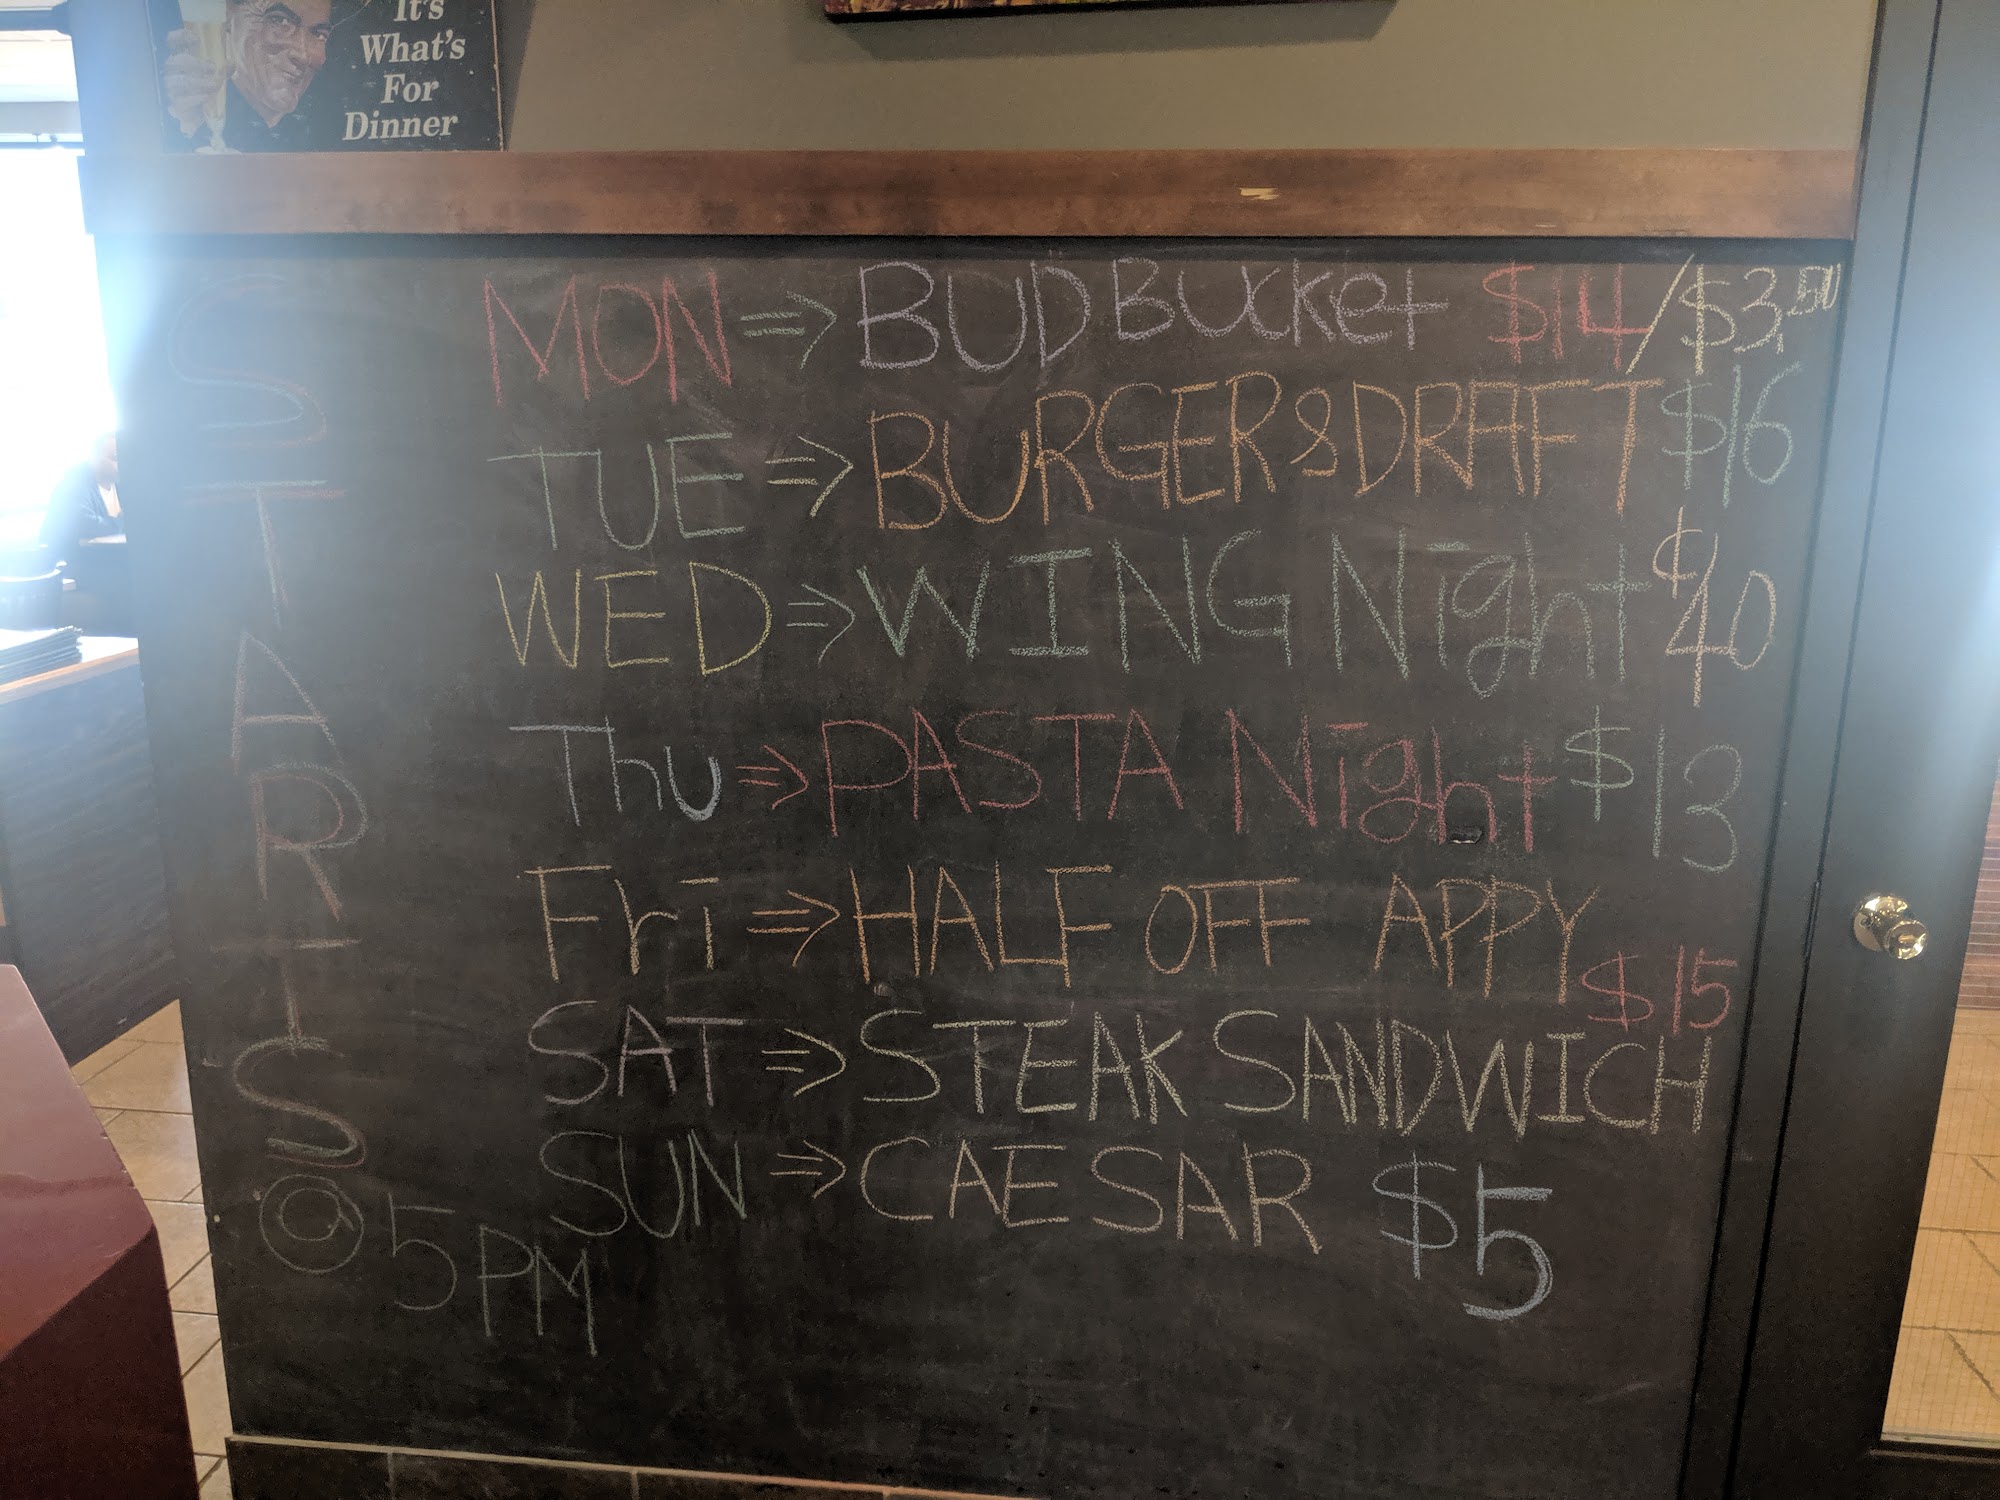 It's
What's
For
Dinner
STARTS
@ 5PM
MON ⇒ BUD BUcket $14/$3.50
TUE ⇒ BURGER & DRAFT $16
WED ⇒ WING Night $40
Thu ⇒ PASTA Night $13
Fri ⇒ HALF OFF APPY
SAT ⇒ STEAK SANDWICH $15
SUN ⇒ CAESAR $5